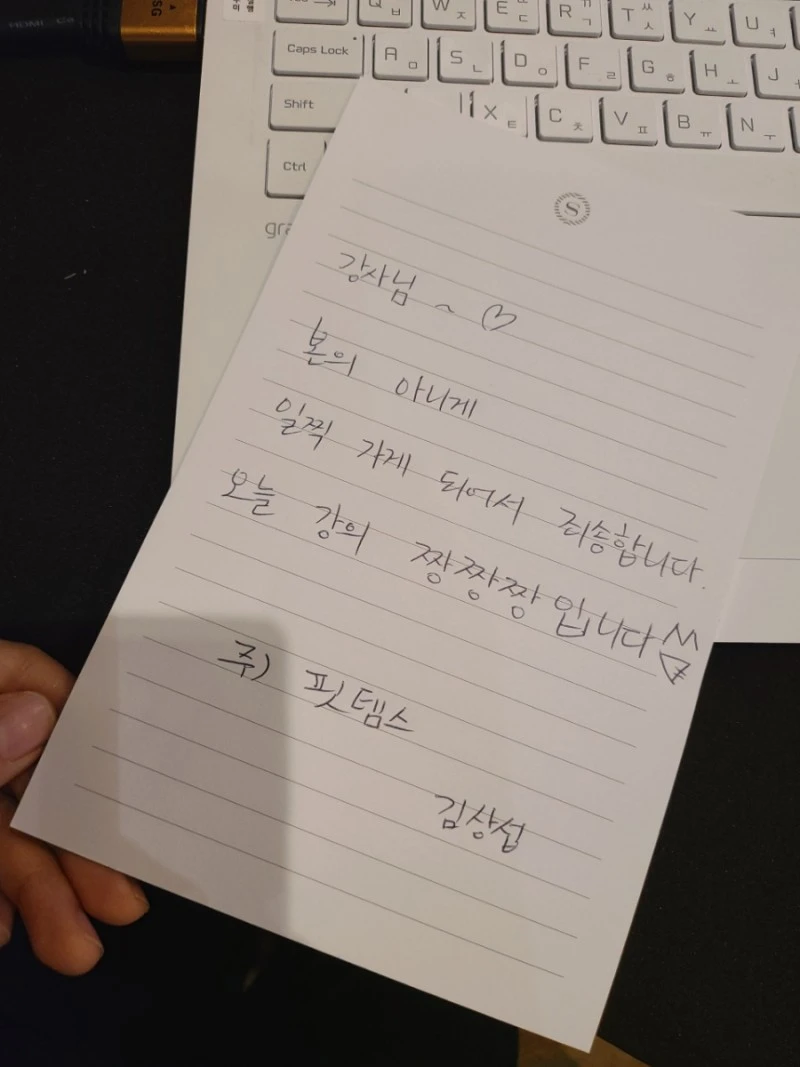 SG
Q ㅂ
W ㅈ
E ㄷ
R ㄲ ㄱ
T ㅆ ㅅ
Y ㅛ
U ㅕ
Caps Lock
A ㅁ
S ㄴ
D ㅇ
F ㄹ
G ㅎ
H ㅗ
J
Shift
X ㅌ
C ㅊ
V ㅍ
B ㅠ
N ㅜ
Ctrl
gra
S
강사님 ~ ♡
본의 아니게
일찍 가게 되어서 죄송합니다.
오늘 강의 짱짱짱입니다
주) 핏템스
김상섭